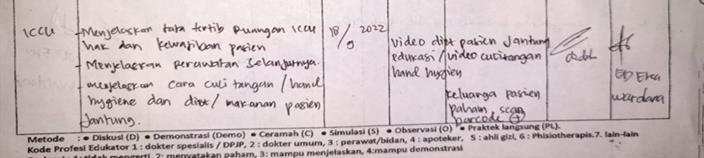 ICCU
- Menjelaskan tata tertib Ruangan ICCU
hak dan kewajiban pasien
- Menjelaskan perawatan selanjutnya.
- menjelaskan cara cuci tangan / hand
hygiene dan diet / makanan pasien
Jantung.
18/9 2022
Video diet pasien Jantung
edukasi / video cucitangan
hand hygien
keluarga pasien
paham, scan
barcode
ED Eka
wardana
Metode : • Diskusi (D) • Demonstrasi (Demo) • Ceramah (C) • Simulasi (S) • Observasi (O) • Praktek langsung (PL).
Kode Profesi Edukator 1 : dokter spesialis / DPJP, 2 : dokter umum, 3 : perawat/bidan, 4 : apoteker, 5 : ahli gizi, 6 : Phisiotherapis.7. lain-lain
mengerti 2: menyatakan paham, 3: mampu menjelaskan, 4:mampu demonstrasi